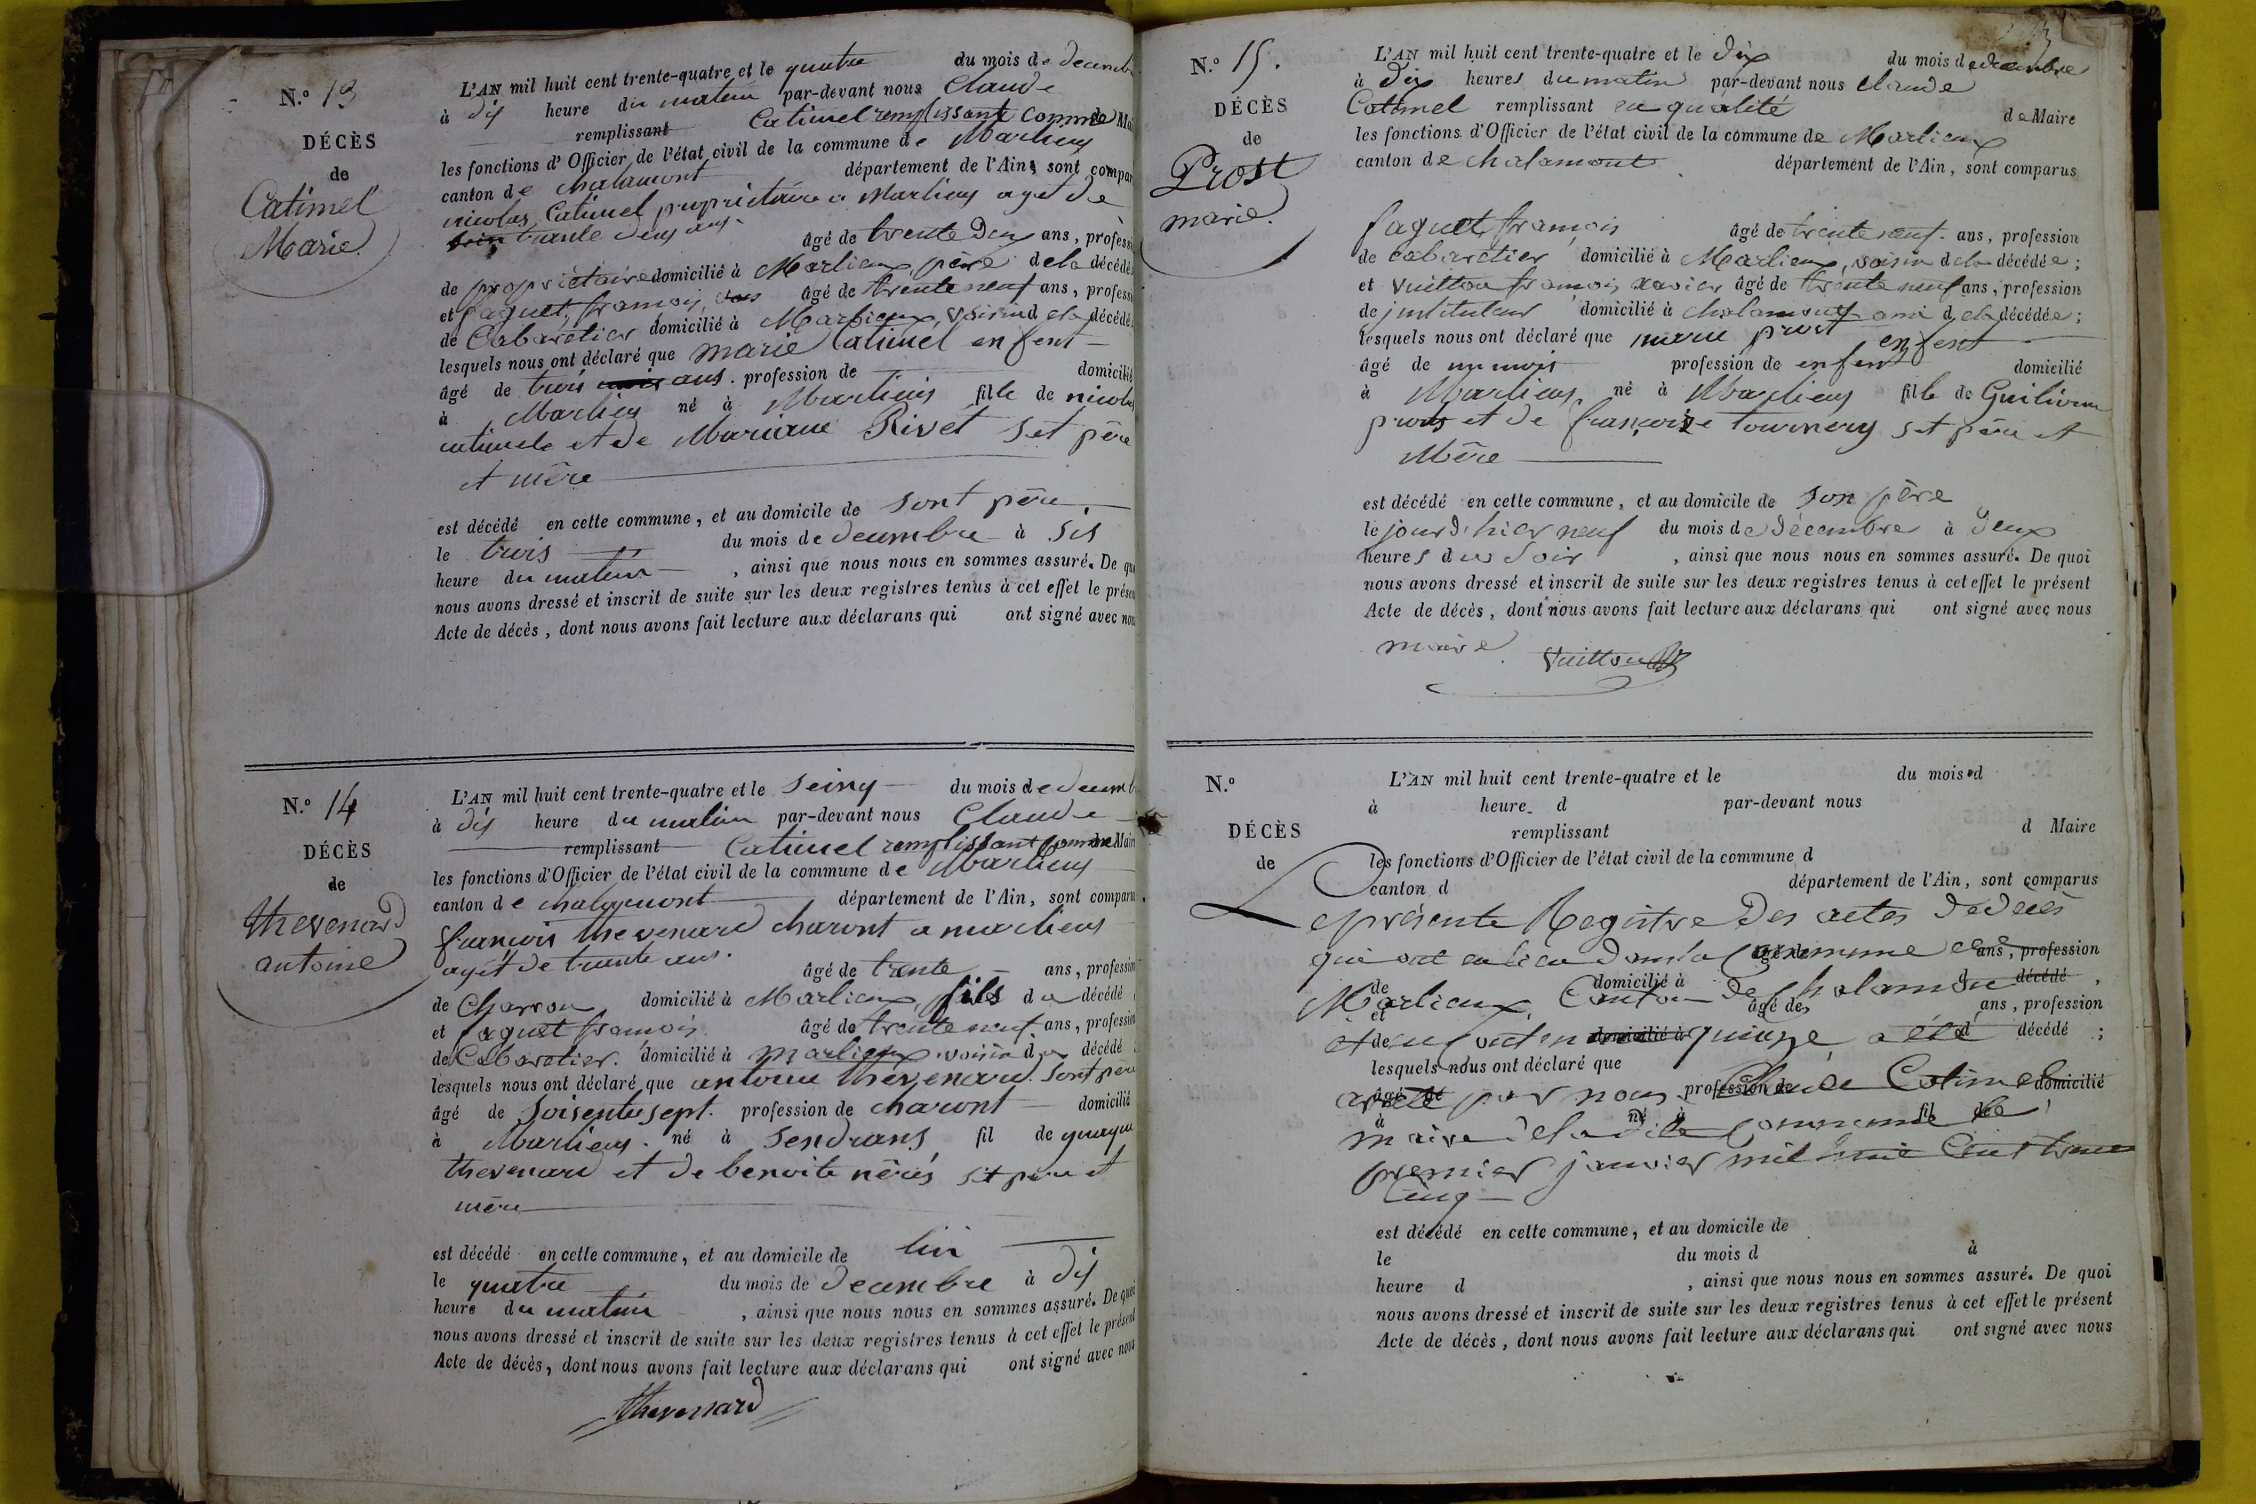 N.º 13
DÉCÈS
de
Catimel
Marie
L'AN mil huit cent trente-quatre et le quatre du mois de decemb
à dis heure du matin par-devant nous Claude
remplissant Catimel remplissant comme de Mai
les fonctions d'Officier de l'état civil de la commune de Marlieu
canton de chalamont département de l'Ain, sont compar
nicolas Catimel propriétaire a Marlieu aget de
trante deus ans
âgé de trente deux ans, professi
de propriétaire domicilié à Marlieux, père de la décédé
et faguet, françois âgé de trente neuf ans, professi
de Cabaretier domicilié à Marlieux, voisin de la décédé
lesquels nous ont déclaré que marie Catimel enfent
âgé de trois ans. profession de domicilié
à Marlieu né à Marlieus fille de nicolas
catimele et de Mariane Rivet set père
et mère
est décédé en cette commune, et au domicile de sont père
le trois du mois de decembre à sis
heure du matin, ainsi que nous nous en sommes assuré. De qu
nous avons dressé et inscrit de suite sur les deux registres tenus à cet effet le présen
Acte de décès, dont nous avons fait lecture aux déclarans qui ont signé avec nous
N.º 14
DÉCÈS
de
thevenard
antoine
L'AN mil huit cent trente-quatre et le seinq du mois de decemb
à dis heure du matin par-devant nous Claude
remplissant Catimel remplissant comme de Maire
les fonctions d'Officier de l'état civil de la commune de Marlieu
canton de chalamont département de l'Ain, sont comparu
françois thevenard charont a marlieus
agét de trante ans.
âgé de trente ans, profession
de Charron domicilié à Marlieux, fils du décédé
et faguet françois âgé de trente neuf ans, profession
de Cabaretier. domicilié à marlieux voisin du décédé
lesquels nous ont déclaré que antoine thevenard. sont père
âgé de soisentesept. profession de charont domicilié
à Marlieus. né à Sendrans fil de
thevenard et de benoite set père et
mère
est décédé en cette commune, et au domicile de lui
le quatre du mois de decembre à dis
heure du matin, ainsi que nous nous en sommes assuré. De quoi
nous avons dressé et inscrit de suite sur les deux registres tenus à cet effet le présent
Acte de décès, dont nous avons fait lecture aux déclarans qui ont signé avec nous
thevenard
N.º 15.
DÉCÈS
de
Prost
marie.
L'AN mil huit cent trente-quatre et le dix du mois de decembre
à dix heures du matin par-devant nous claude
Catimel remplissant en qualité de Maire
les fonctions d'Officier de l'état civil de la commune de Marlieux
canton de chalamont département de l'Ain, sont comparus
faguet, françois âgé de trente neuf. ans, profession
de cabaretier domicilié à Marlieux, voisin de la décédée;
et Vuitton françois xavier âgé de trente neuf ans, profession
de instituteur domicilié à chalamont ami de la décédée;
lesquels nous ont déclaré que marie prost enfent
âgé de un mois profession de enfent domicilié
à Marlieus né à Marlieus fille de Guilioum
prost et de françoise tournery set père et
Mère
est décédé en cette commune, et au domicile de son père
le jourd'hier neuf du mois de décembre à deux
heures du soir, ainsi que nous nous en sommes assuré. De quoi
nous avons dressé et inscrit de suite sur les deux registres tenus à cet effet le présent
Acte de décès, dont nous avons fait lecture aux déclarans qui ont signé avec nous
maire. Vuitton
N.º
DÉCÈS
de
L'AN mil huit cent trente-quatre et le du mois d
à heure d par-devant nous
remplissant d Maire
les fonctions d'Officier de l'état civil de la commune d
canton d département de l'Ain, sont comparus
Le présente Registre des actes dedecès
qui ont eu lieu dans la Commune de
âgé de ans, profession
de domicilié à d décédé,
Marlieux, Canton de Chalamon
et âgé de ans, profession
de domicilié à d décédé;
quinze, a été
lesquels nous ont déclaré que
âgé de profession de domicilié
arrété par nous Claude Catimel
à né à fil de
maire de la dite Commune le
premier janvier mil huit Cent trente
Cinq
est décédé en cette commune, et au domicile de
le du mois d à
heure d, ainsi que nous nous en sommes assuré. De quoi
nous avons dressé et inscrit de suite sur les deux registres tenus à cet effet le présent
Acte de décès, dont nous avons fait lecture aux déclarans qui ont signé avec nous